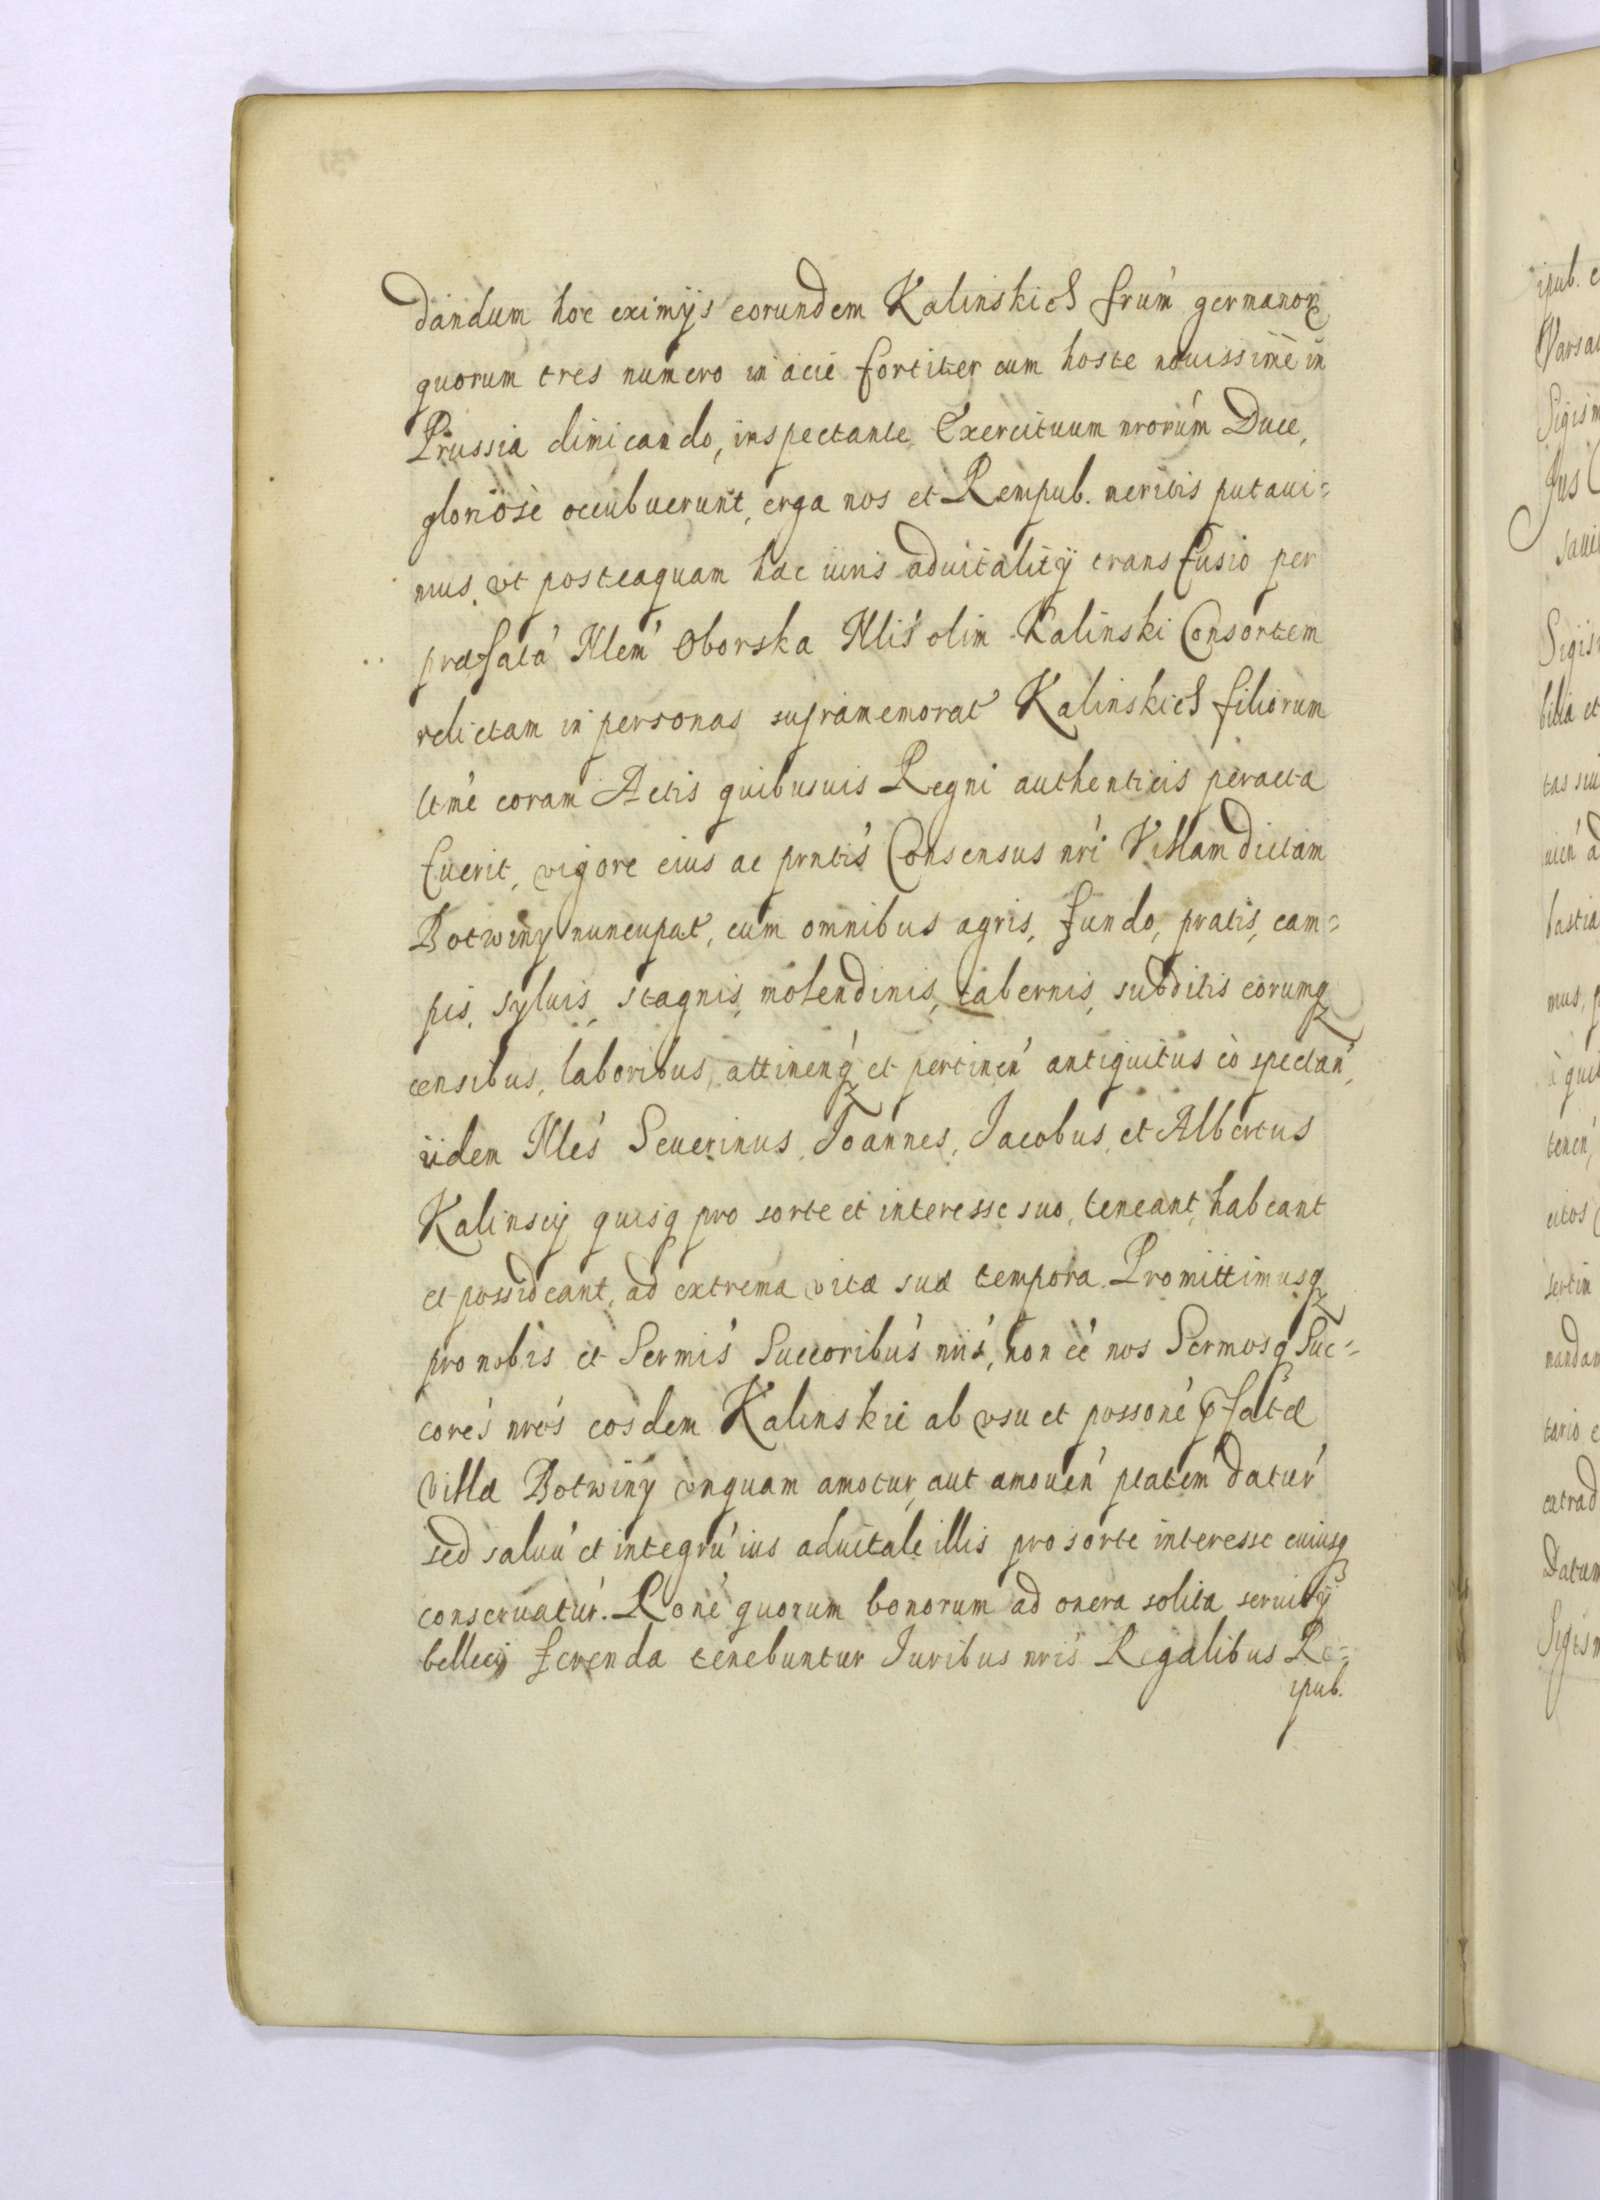 dandum hoc eximijs eorundem Kalinskich frum' germanor
quorum tres numero in acie fortiter cum hoste nouissimè in
Prussia dimicando, inspectante Exercituum nrorum' Duce,
gloriosè occubuerunt, erga nos et Rempub. meritis putaui=
mus, vt posteaquam hac iuris aduitalitÿ transfusio per
præfata' Nlem' Oborska Nlis' olim Kalinski Consortem
relictam in personas supramemorat Kalinskich filiorum
ltme' coram Actis quibusuis Regni authenticis peracta
fuerit, vigore eius ac prntis' Consensus nri' Villam dictam
Botwiny nuncupat, cum omnibus agris, fundo, pratis, cam=
pis, syluis, stagnis, molendinis, tabernis, subditis eorumq
censibus, laboribus, attinen'q et pertinen' antiquitus eò spectan',
iidem Nles' Seuerinus, Joannes, Jacobus, et Albertus
Kalinscij quisq pro sorte et interesse suo, teneant, habeant
et possideant, ad extrema vitæ suæ tempora. Promittimusq
pro nobis et Sermis' Succoribus' nris', non ee' nos Sermosq Suc=
cores' nros' eosdem Kalinskie ab vsu et possone' pfatæ
villæ Botwiny vnquam amotur, aut amouen' ptatem' datur'
sed saluu' et integru' ius aduitale illis pro sorte interesse cuiusq
conseruatur'. Rone' quorum bonorum ad onera solita seruitÿ
bellici ferenda tenebuntur Juribus nris' Regalibus Re=
ipub.